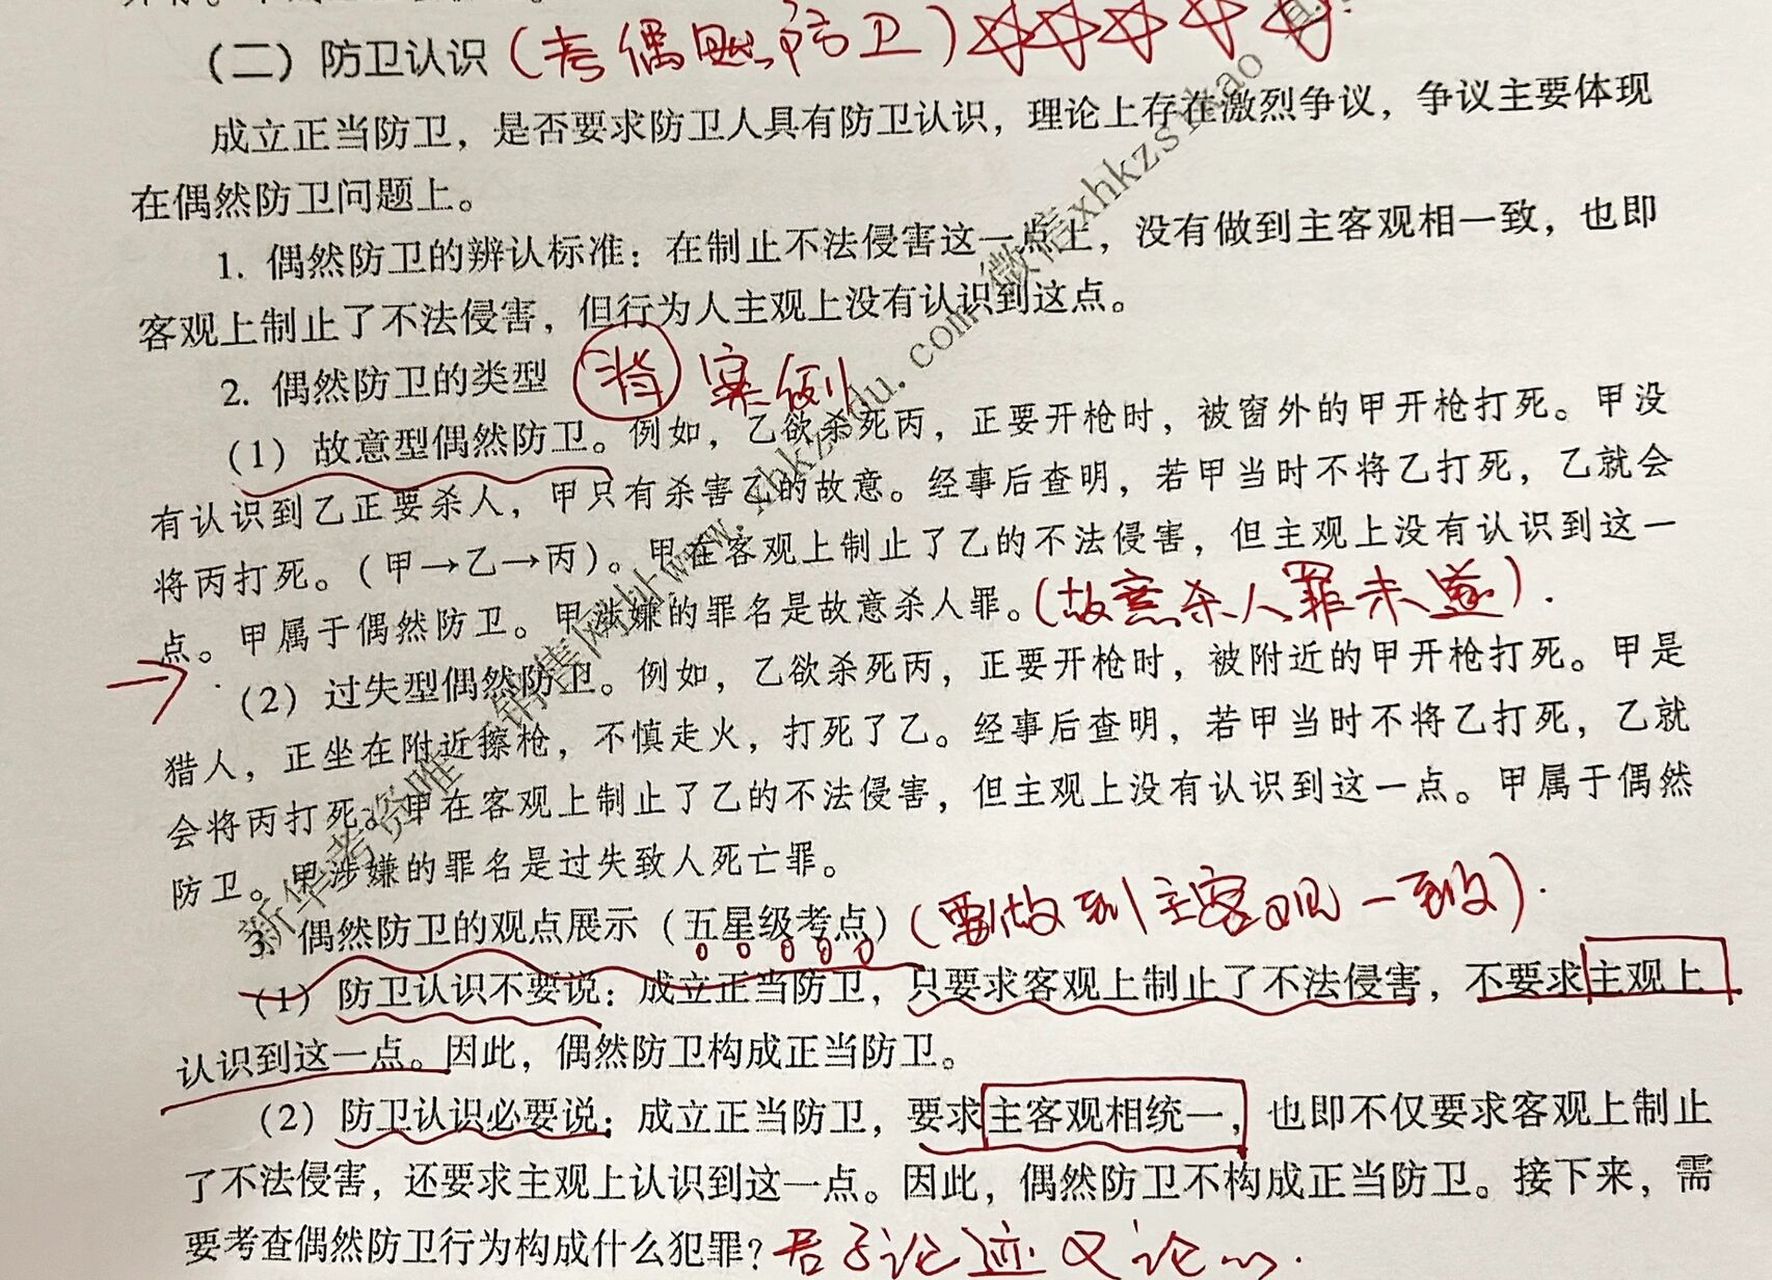 （二）防卫认识（考偶然防卫）
成立正当防卫，是否要求防卫人具有防卫认识，理论上存在激烈争议，争议主要体现
在偶然防卫问题上。
1. 偶然防卫的辨认标准：在制止不法侵害这一点上，没有做到主客观相一致，也即
客观上制止了不法侵害，但行为人主观上没有认识到这点。
2. 偶然防卫的类型 案例
（1）故意型偶然防卫。例如，乙欲杀死丙，正要开枪时，被窗外的甲开枪打死。甲没
有认识到乙正要杀人，甲只有杀害乙的故意。经事后查明，若甲当时不将乙打死，乙就会
将丙打死。（甲→乙→丙）。甲在客观上制止了乙的不法侵害，但主观上没有认识到这一
点。甲属于偶然防卫。甲涉嫌的罪名是故意杀人罪。（故意杀人罪未遂）.
（2）过失型偶然防卫。例如，乙欲杀死丙，正要开枪时，被附近的甲开枪打死。甲是
猎人，正坐在附近擦枪，不慎走火，打死了乙。经事后查明，若甲当时不将乙打死，乙就
会将丙打死。甲在客观上制止了乙的不法侵害，但主观上没有认识到这一点。甲属于偶然
防卫。甲涉嫌的罪名是过失致人死亡罪。
3. 偶然防卫的观点展示（五星级考点）（要做到主客观一致）.
（1）防卫认识不要说：成立正当防卫，只要求客观上制止了不法侵害，不要求主观上
认识到这一点。因此，偶然防卫构成正当防卫。
（2）防卫认识必要说：成立正当防卫，要求主客观相统一，也即不仅要求客观上制止
了不法侵害，还要求主观上认识到这一点。因此，偶然防卫不构成正当防卫。接下来，需
要考查偶然防卫行为构成什么犯罪？君子论迹又论心.